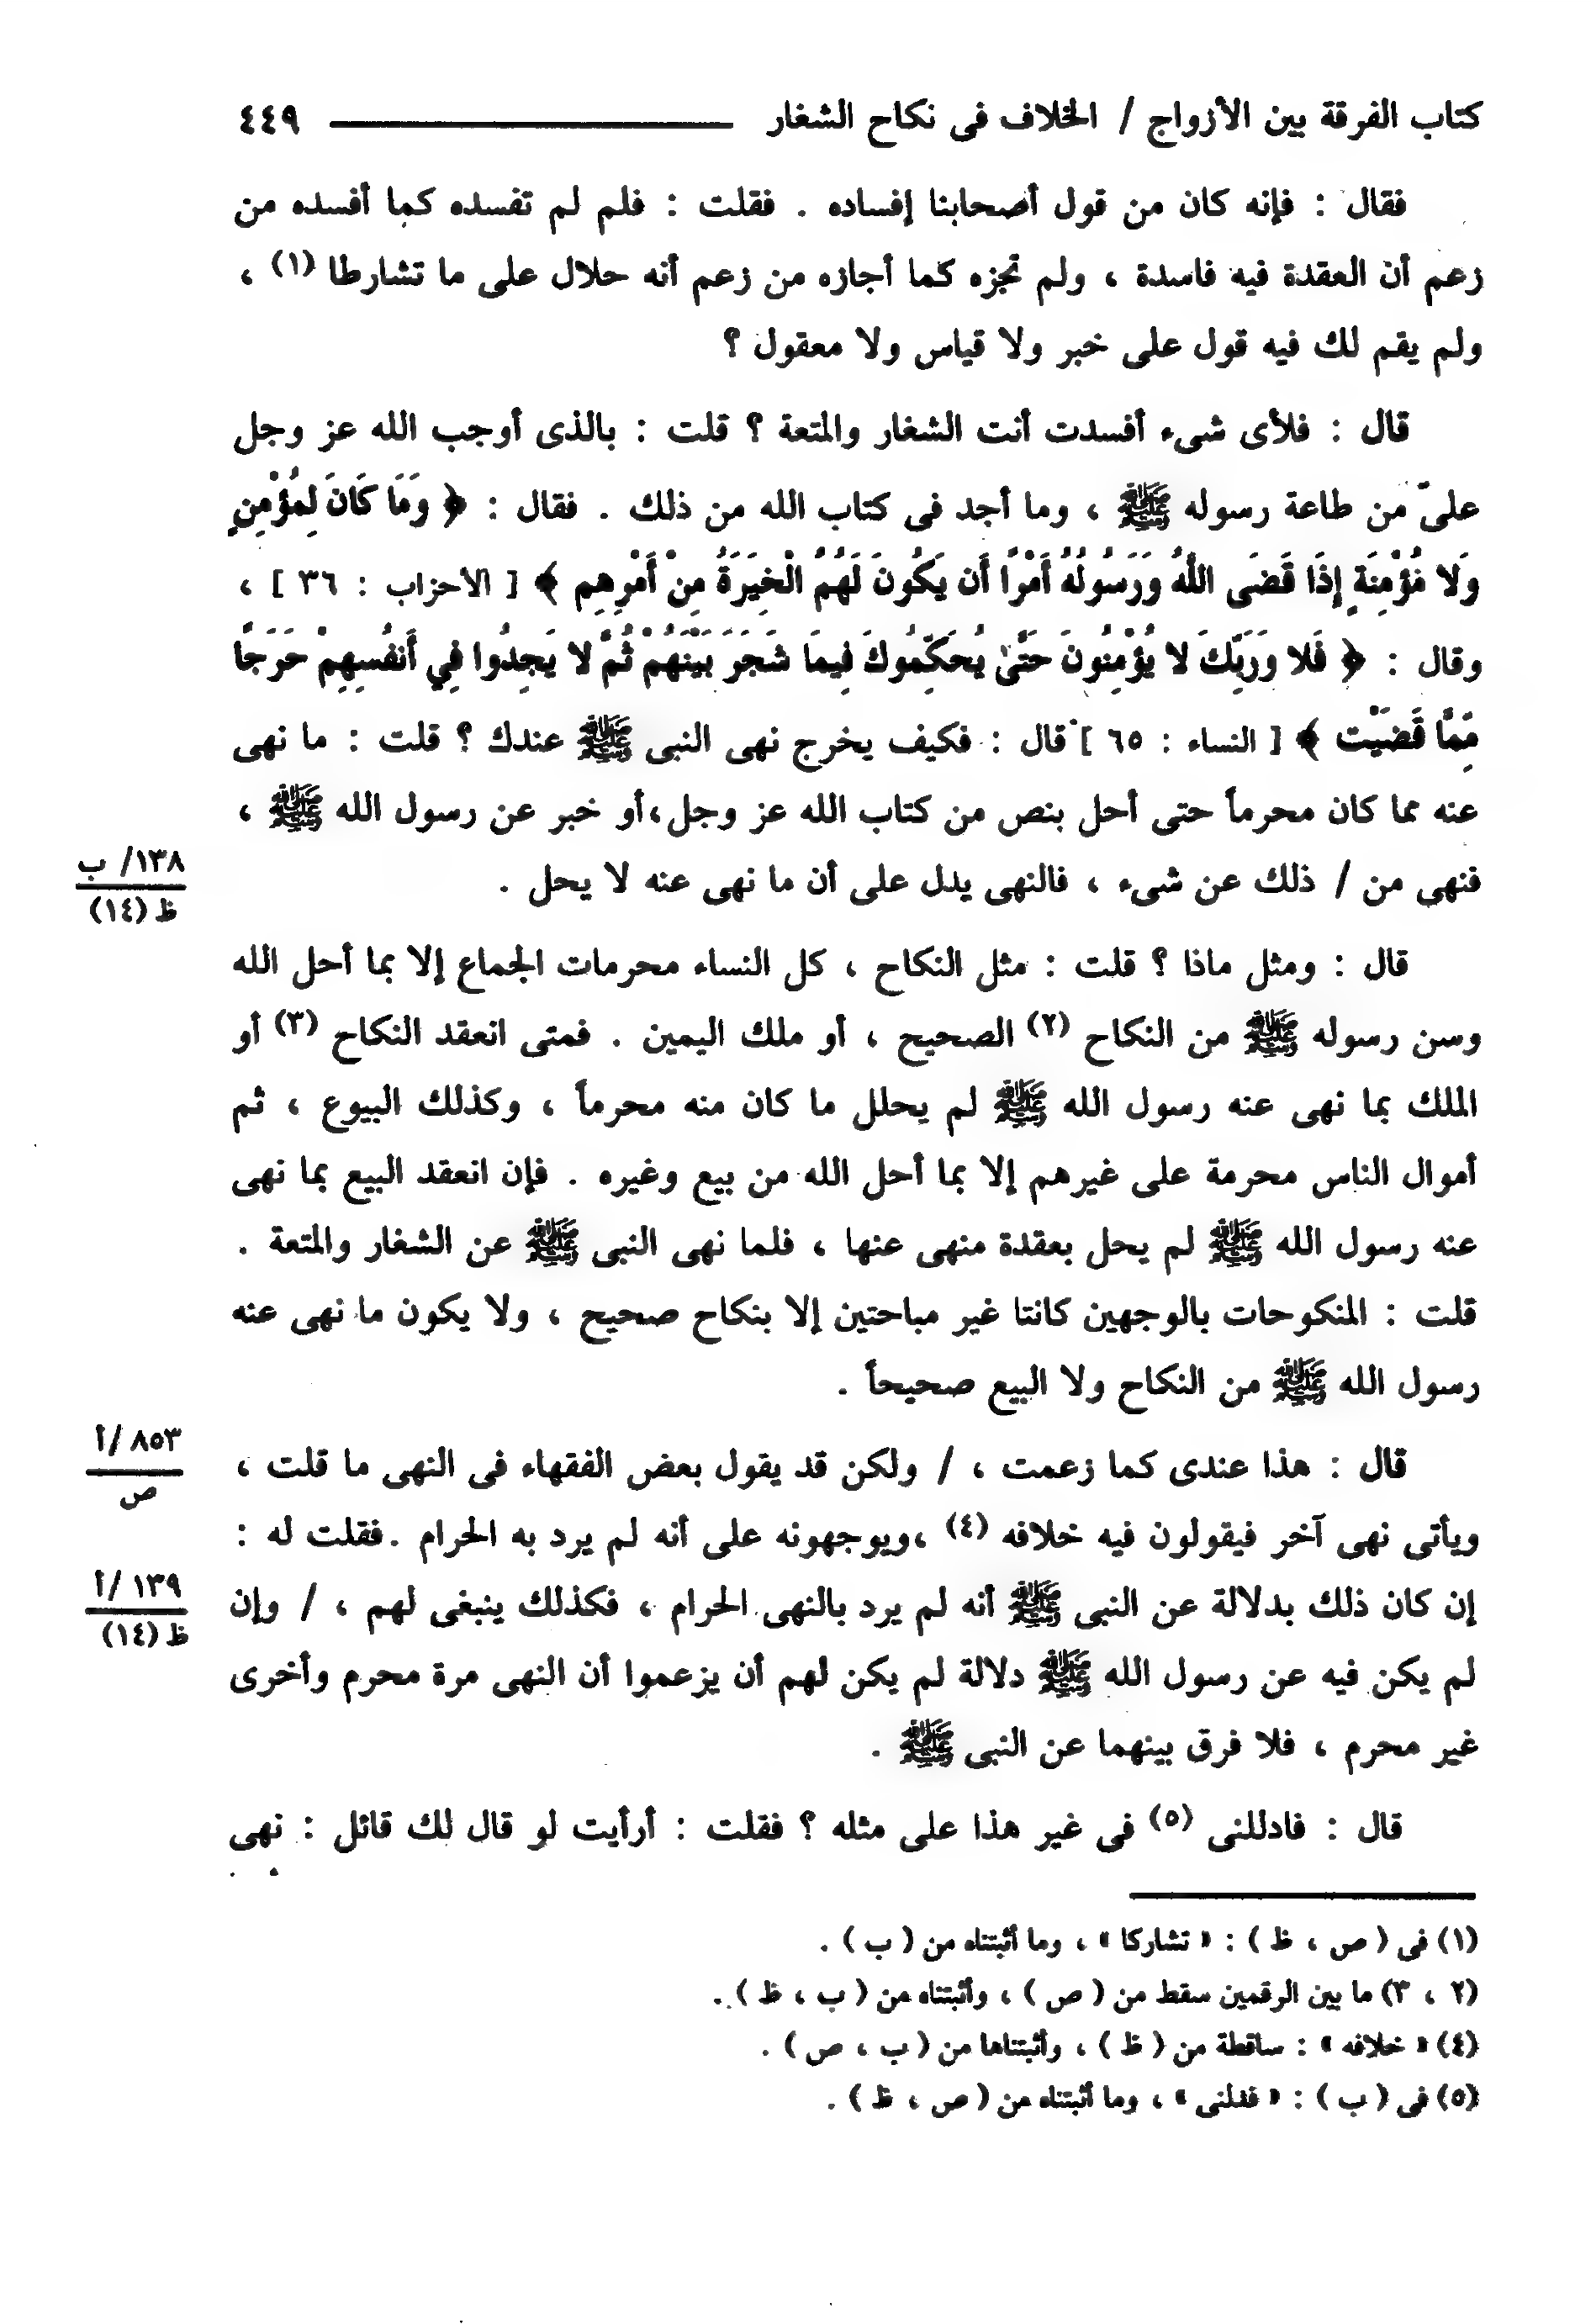 كتاب الفرقة بين الأزواج / الخلاف فى نكاح الشغار ٤٤٩
فقال : فإنه كان من قول أصحابنا إفساده . فقلت : فلم لم تفسده كما أفسده من
زعم أن العقدة فيه فاسدة ، ولم تجزه كما أجازه من زعم أنه حلال على ما تشارطا (١) ،
ولم يقم لك فيه قول على خبر ولا قياس ولا معقول ؟
قال : فلأى شىء أفسدت أنت الشغار والمتعة ؟ قلت : بالذى أوجب الله عز وجل
علىّ من طاعة رسوله ﷺ ، وما أجد فى كتاب الله من ذلك . فقال : ﴿ وَمَا كَانَ لِمُؤْمِنٍ
وَلا مُؤْمِنَةٍ إِذَا قَضَى اللَّهُ وَرَسُولُهُ أَمْرًا أَن يَكُونَ لَهُمُ الْخِيَرَةُ مِنْ أَمْرِهِم ﴾ [ الأحزاب : ٣٦ ] ،
وقال : ﴿ فَلا وَرَبِّكَ لا يُؤْمِنُونَ حَتَّىٰ يُحَكِّمُوكَ فِيمَا شَجَرَ بَيْنَهُمْ ثُمَّ لا يَجِدُوا فِي أَنفُسِهِمْ حَرَجًا
مِّمَّا قَضَيْت ﴾ [ النساء : ٦٥ ] قال : فكيف يخرج نهى النبى ﷺ عندك ؟ قلت : ما نهى
عنه مما كان محرماً حتى أحل بنص من كتاب الله عز وجل،أو خبر عن رسول الله ﷺ ،
فنهى من / ذلك عن شىء ، فالنهى يدل على أن ما نهى عنه لا يحل .
١٣٨/ ب
ظ (١٤)
قال : ومثل ماذا ؟ قلت : مثل النكاح ، كل النساء محرمات الجماع إلا بما أحل الله
وسن رسوله ﷺ من النكاح (٢) الصحيح ، أو ملك اليمين . فمتى انعقد النكاح (٣) أو
الملك بما نهى عنه رسول الله ﷺ لم يحلل ما كان منه محرماً ، وكذلك البيوع ، ثم
أموال الناس محرمة على غيرهم إلا بما أحل الله من بيع وغيره . فإن انعقد البيع بما نهى
عنه رسول الله ﷺ لم يحل بعقدة منهى عنها ، فلما نهى النبى ﷺ عن الشغار والمتعة .
قلت : المنكوحات بالوجهين كانتا غير مباحتين إلا بنكاح صحيح ، ولا يكون ما نهى عنه
رسول الله ﷺ من النكاح ولا البيع صحيحاً .
قال : هذا عندى كما زعمت ، / ولكن قد يقول بعض الفقهاء فى النهى ما قلت ،
٨٥٣ /أ
ص
ويأتى نهى آخر فيقولون فيه خلافه (٤) ،ويوجهونه على أنه لم يرد به الحرام .فقلت له :
إن كان ذلك بدلالة عن النبى ﷺ أنه لم يرد بالنهى الحرام ، فكذلك ينبغى لهم ، / وإن
١٣٩ /أ
ظ (١٤)
لم يكن فيه عن رسول الله ﷺ دلالة لم يكن لهم أن يزعموا أن النهى مرة محرم وأخرى
غير محرم ، فلا فرق بينهما عن النبى ﷺ .
قال : فادللنى (٥) فى غير هذا على مثله ؟ فقلت : أرأيت لو قال لك قائل : نهى
(١) فى ( ص ، ظ ) : « تشاركا » ، وما أثبتناه من ( ب ) .
(٢ ، ٣) ما بين الرقمين سقط من ( ص ) ، وأثبتناه من ( ب ، ظ ) .
(٤) « خلافه » : ساقطة من ( ظ ) ، وأثبتناها من ( ب ، ص ) .
(٥) فى ( ب ) : « فدلنى » ، وما أثبتناه من ( ص ، ظ ) .